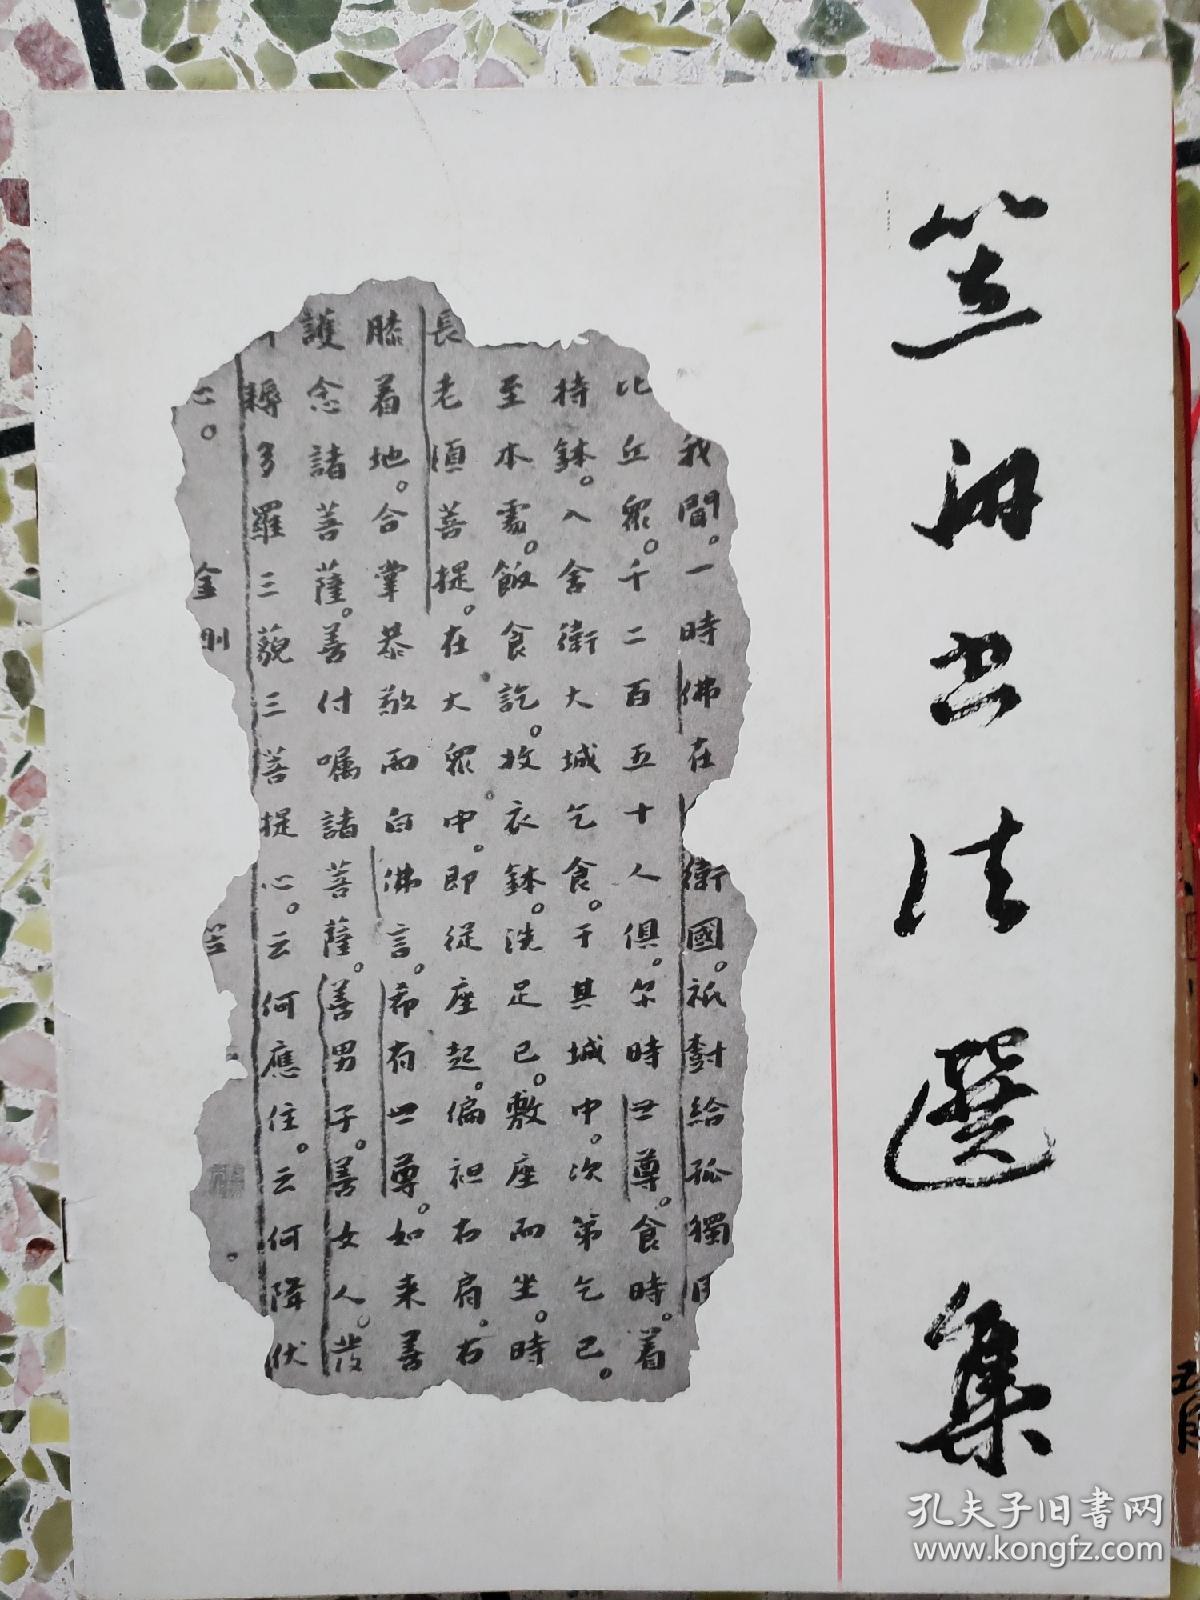 笠舟书法選集
我聞。一時佛在 衛國。祇樹給孤獨
比丘眾。千二百五十人俱。尔時世尊。食時。着
持鉢。入舍衛大城乞食。于其城中。次第乞已。
至本處。飯食訖。收衣鉢。洗足已。敷座而坐。時
長老須菩提。在大眾中。即從座起。偏袒右肩。右
膝着地。合掌恭敬而白佛言。希有世尊。如来善
護念諸菩薩。善付囑諸菩薩。善男子。善女人。發
耨多羅三藐三菩提心。云何應住。云何降伏
心。 金刚 笠
孔夫子旧书网
www.kongfz.com